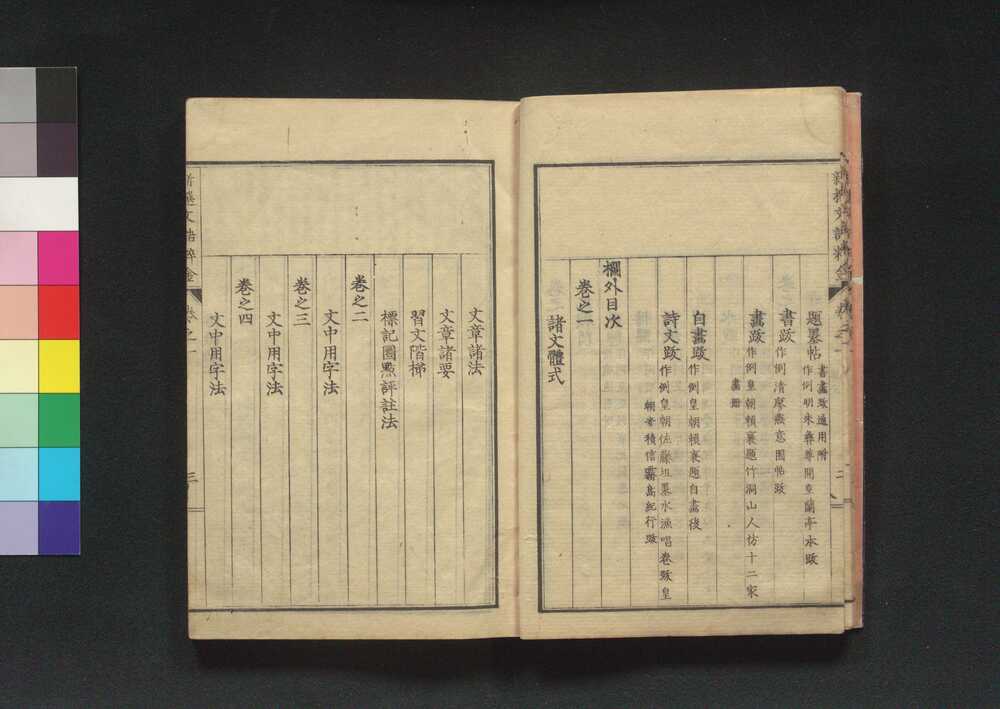 題墨帖 書畫跋通用附
作例明朱彝尊開皇蘭亭本跋
書跋 作例清廖燕意園帖跋
畫跋 作例皇朝賴襄題竹洞山人仿十二家
畫冊
自畫跋 作例皇朝賴襄題自畫後
詩文跋 作例皇朝佐藤坦墨水漁唱卷跋皇
朝安積信霧島紀行跋
欄外目次
卷之一
諸文體式
文章諸法
文章諸要
習文階梯
標記圈點評註法
卷之二
文中用字法
卷之三
文中用字法
卷之四
文中用字法
三